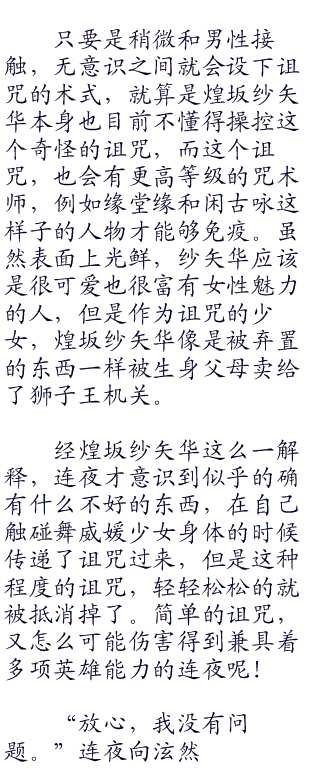 只要是稍微和男性接
触，无意识之间就会设下诅
咒的术式，就算是煌坂纱矢
华本身也目前不懂得操控这
个奇怪的诅咒，而这个诅
咒，也会有更高等级的咒术
师，例如缘堂缘和闲古咏这
样子的人物才能够免疫。虽
然表面上光鲜，纱矢华应该
是很可爱也很富有女性魅力
的人，但是作为诅咒的少
女，煌坂纱矢华像是被弃置
的东西一样被生身父母卖给
了狮子王机关。
经煌坂纱矢华这么一解
释，连夜才意识到似乎的确
有什么不好的东西，在自己
触碰舞威媛少女身体的时候
传递了诅咒过来，但是这种
程度的诅咒，轻轻松松的就
被抵消掉了。简单的诅咒，
又怎么可能伤害得到兼具着
多项英雄能力的连夜呢！
“放心，我没有问
题。”连夜向泫然